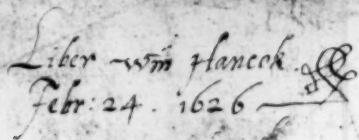 Liber Wm̃ Hancok.
Febr: 24. 1626